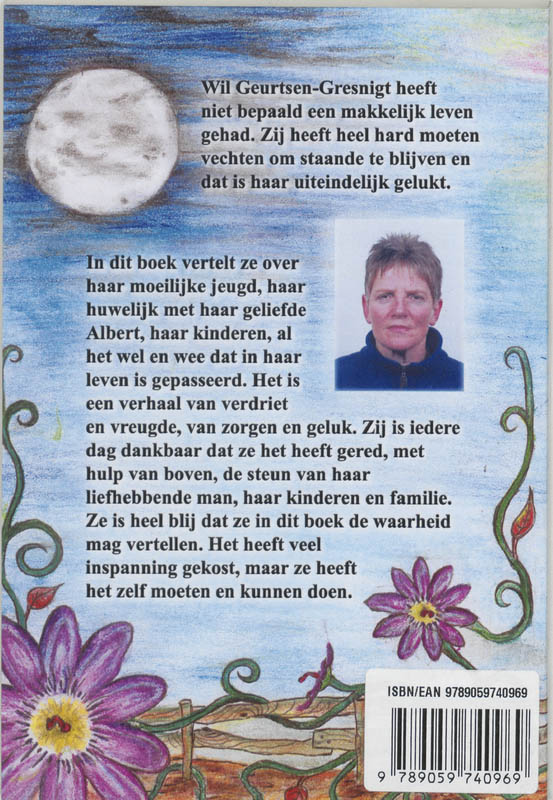 Wil Geurtsen-Gresnigt heeft
niet bepaald een makkelijk leven
gehad. Zij heeft heel hard moeten
vechten om staande te blijven en
dat is haar uiteindelijk gelukt.
In dit boek vertelt ze over
haar moeilijke jeugd, haar
huwelijk met haar geliefde
Albert, haar kinderen, al
het wel en wee dat in haar
leven is gepasseerd. Het is
een verhaal van verdriet
en vreugde, van zorgen en geluk. Zij is iedere
dag dankbaar dat ze het heeft gered, met
hulp van boven, de steun van haar
liefhebbende man, haar kinderen en familie.
Ze is heel blij dat ze in dit boek de waarheid
mag vertellen. Het heeft veel
inspanning gekost, maar ze heeft
het zelf moeten en kunnen doen.
ISBN/EAN 9789059740969
9 789059 740969